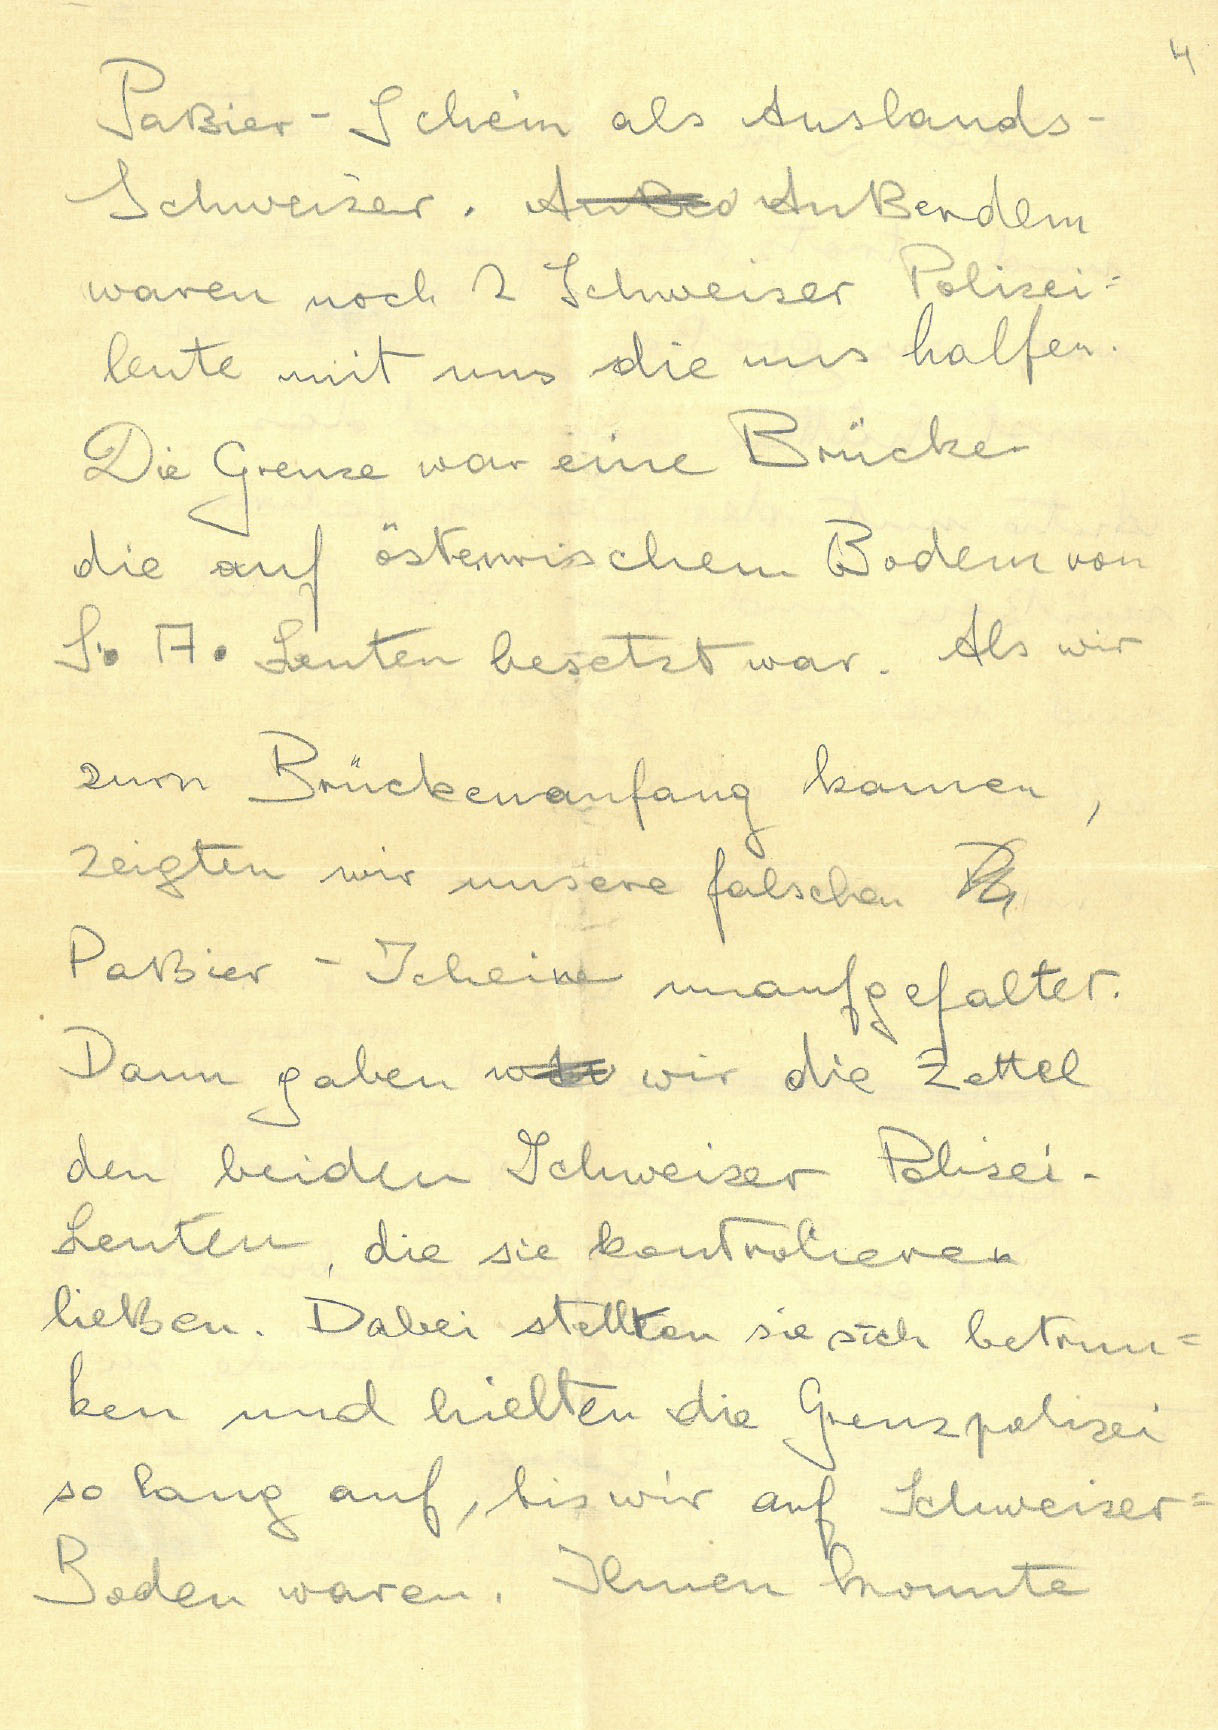 4
Paßier - Schein als Auslands-
Schweizer. Außed Außerdem
waren noch 2 Schweizer Polizei=
leute mit uns die uns halfen.
Die Grenze war eine Brücke
die auf österrischem Boden von
S. A. Leuten besetzt war. Als wir
zum Brückenanfang kamen,
zeigten wir unsere falschen
Paßier - Scheine unaufgefaltet.
Dann gaben wir die Zettel
den beiden Schweizer Polizei-
Leuten, die sie kontrolieren
ließen. Dabei stellten sie sich betrun=
ken und hielten die Grenzpolizei
so lang auf, bis wir auf Schweizer=
Boden waren. Ihnen konnte